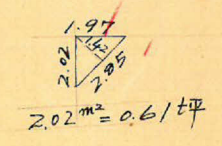 1.97
1.42
2.02
2.85
2.02 m² = 0.61 坪